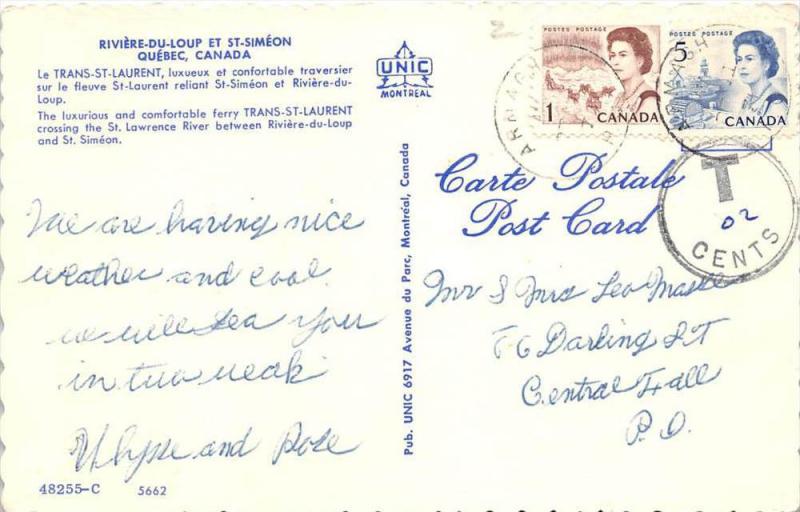 RIVIÈRE-DU-LOUP ET ST-SIMÉON
QUÉBEC, CANADA
Le TRANS-ST-LAURENT, luxueux et confortable traversier
sur le fleuve St-Laurent reliant St-Siméon et Rivière-du-
Loup.
The luxurious and comfortable ferry TRANS-ST-LAURENT
crossing the St. Lawrence River between Rivière-du-Loup
and St. Siméon.
UNIC
MONTREAL
We are having nice
weather and cool.
we will sea you
in two weak
Ulysse and Rose
48255-C 5662
Pub. UNIC 6917 Avenue du Parc, Montréal, Canada
POSTES POSTAGE
1 CANADA
POSTES POSTAGE
5
CANADA
ARMAGH
ARMAGH
Carte Postale
Post Card
T
02
CENTS
Mr & Mrs Leo Masse
66 Darling ST
Central Fall